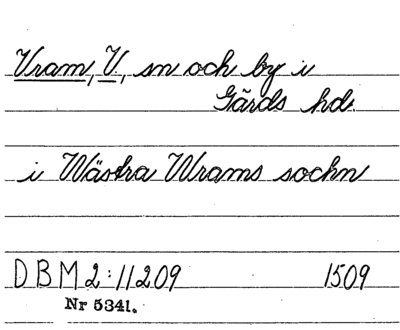 Vram, V., sn och by i
Gärds hd.
i Wästra Wrams sochn
DBM 2:11209 1509
Nr 5341.